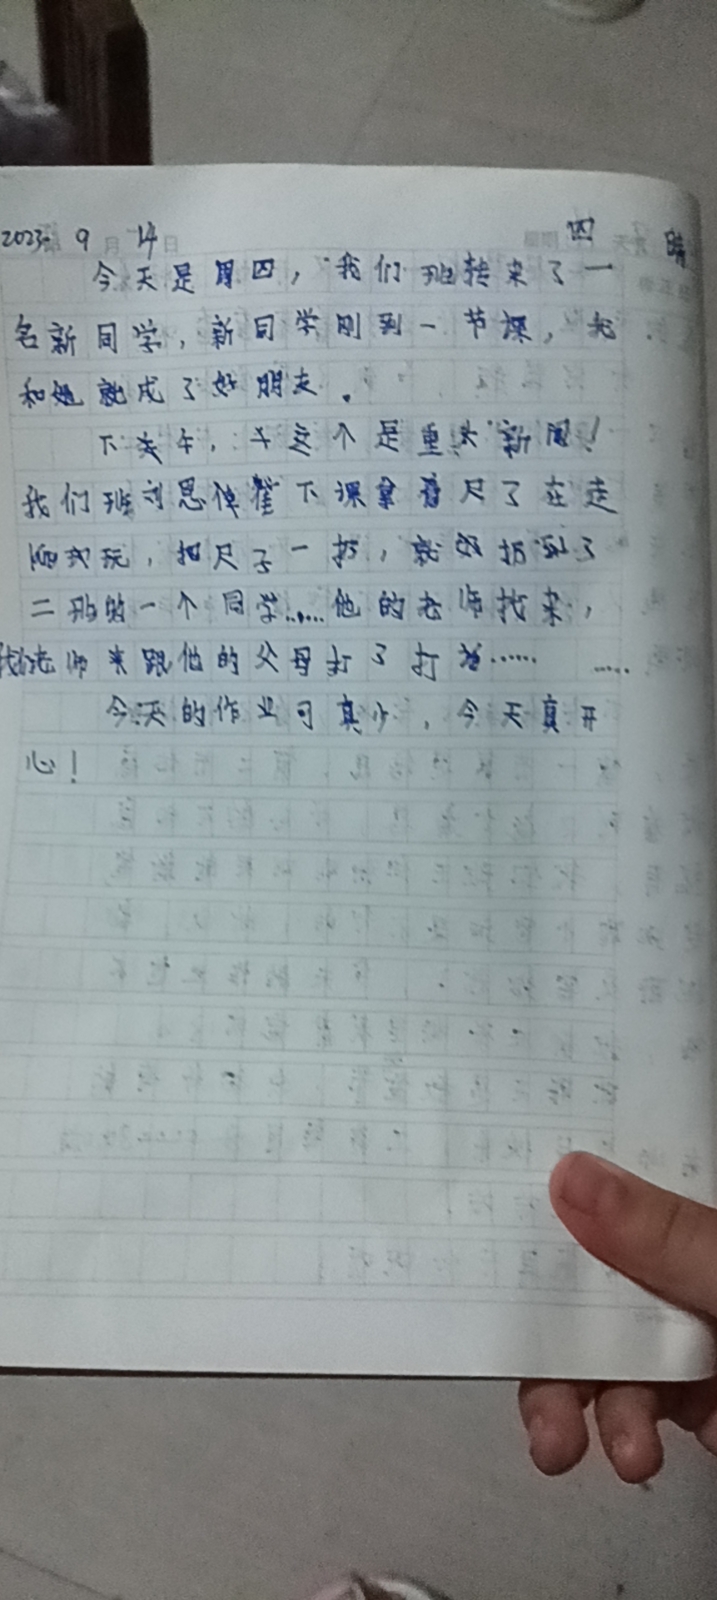 2023年 9月 14日 星期 四 天气 晴
今天是周四，我们班转来了一
名新同学，新同学刚到一节课，
和她就成了好朋友。
下午，这个是重大新闻！
我们班刘思 下课拿着尺子在走
廊玩，把尺子一扔，就 扔到了
二班的一个同学……他的老师找来，
我们老师来跟他的父母打了打 …… ……
今天的作业可真少，今天真开
心！